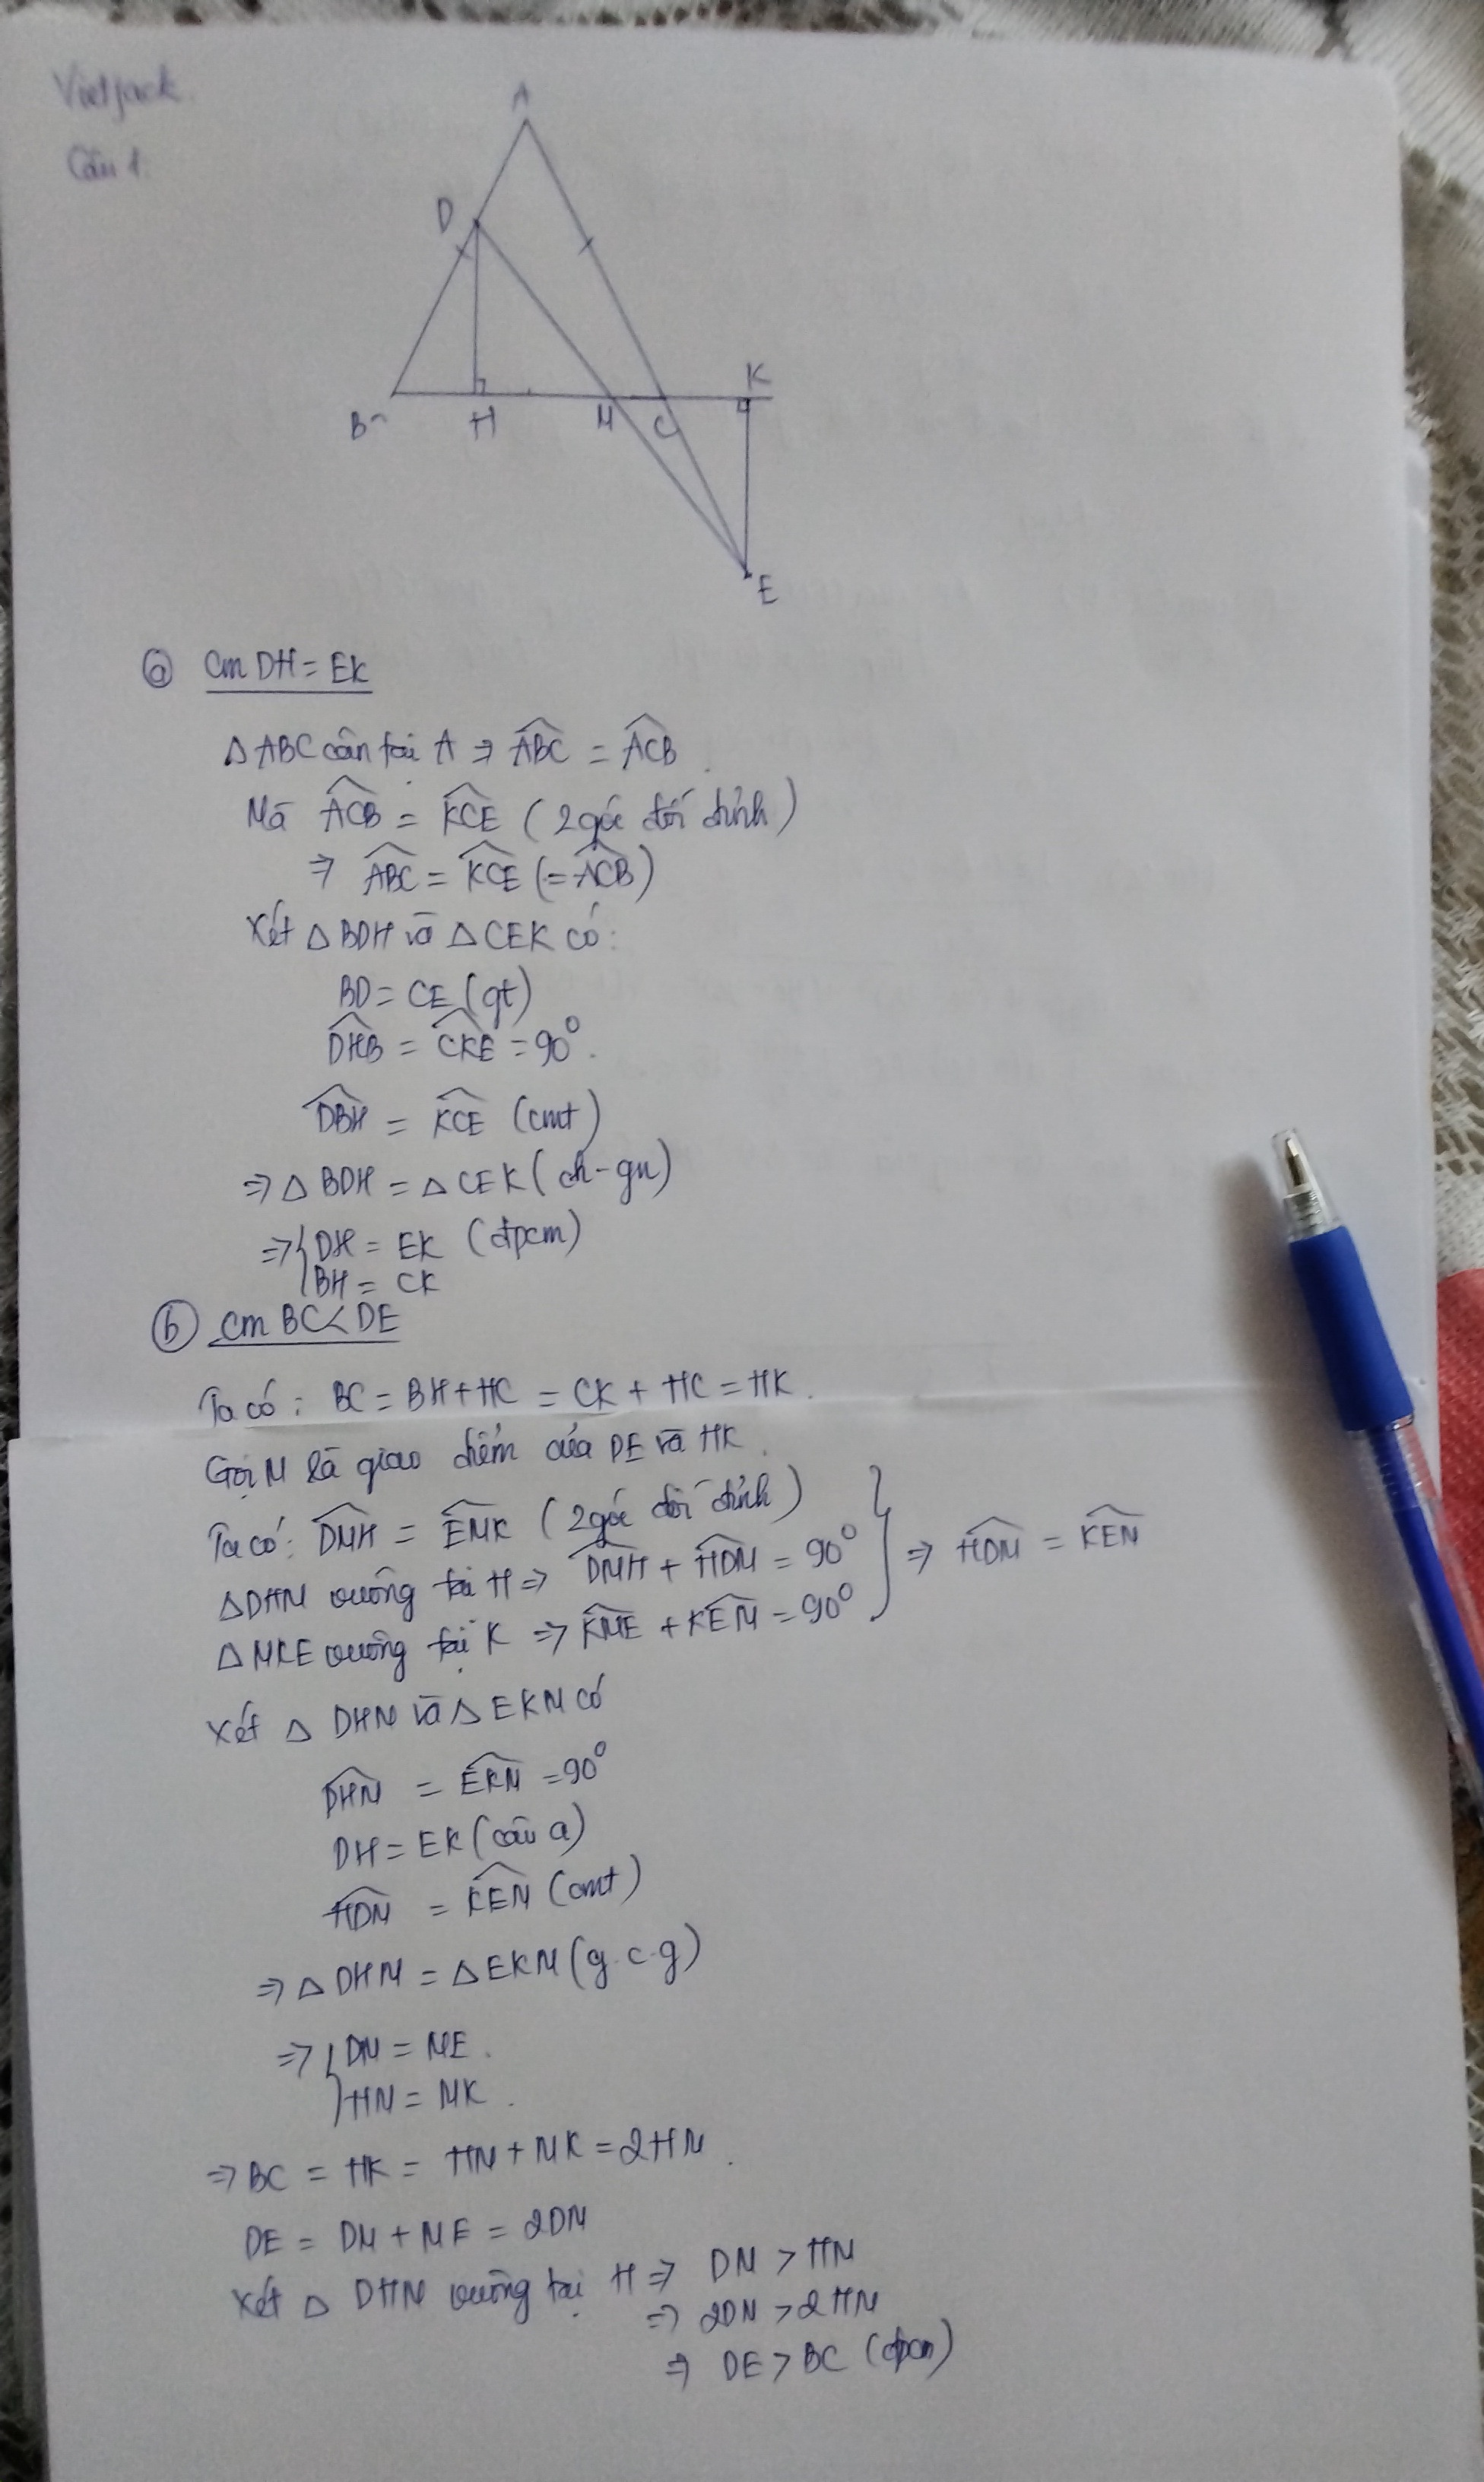 Vietjack.
Câu 1.
A
D
K
B H M C
E
ⓐ cm DH = EK
△ABC cân tại A ⇒ \widehat{ABC} = \widehat{ACB}.
Mà \widehat{ACB} = \widehat{KCE} (2 góc đối đỉnh)
⇒ \widehat{ABC} = \widehat{KCE} (= \widehat{ACB})
Xét △BDH và △CEK có:
BD = CE (gt)
\widehat{DHB} = \widehat{CKE} = 90°.
\widehat{DBH} = \widehat{KCE} (cmt)
⇒ △BDH = △CEK (ch-gn)
⇒ { DH = EK (đpcm)
BH = CK
ⓑ cm BC < DE
Ta có: BC = BH + HC = CK + HC = HK.
Gọi M là giao điểm của DE và HK.
Ta có: \widehat{DMH} = \widehat{EMK} (2 góc đối đỉnh)
△DHM vuông tại H ⇒ \widehat{DMH} + \widehat{HDM} = 90° } ⇒ \widehat{HDM} = \widehat{KEM}
△MKE vuông tại K ⇒ \widehat{KME} + \widehat{KEM} = 90°
Xét △DHM và △EKM có
\widehat{DHM} = \widehat{EKM} = 90°
DH = EK (câu a)
\widehat{HDM} = \widehat{KEM} (cmt)
⇒ △DHM = △EKM (g.c.g)
⇒ { DM = ME.
HM = MK.
⇒ BC = HK = HM + MK = 2HM.
DE = DM + ME = 2DM
Xét △DHM vuông tại H ⇒ DM > HM
⇒ 2DM > 2HM
⇒ DE > BC (đpcm)